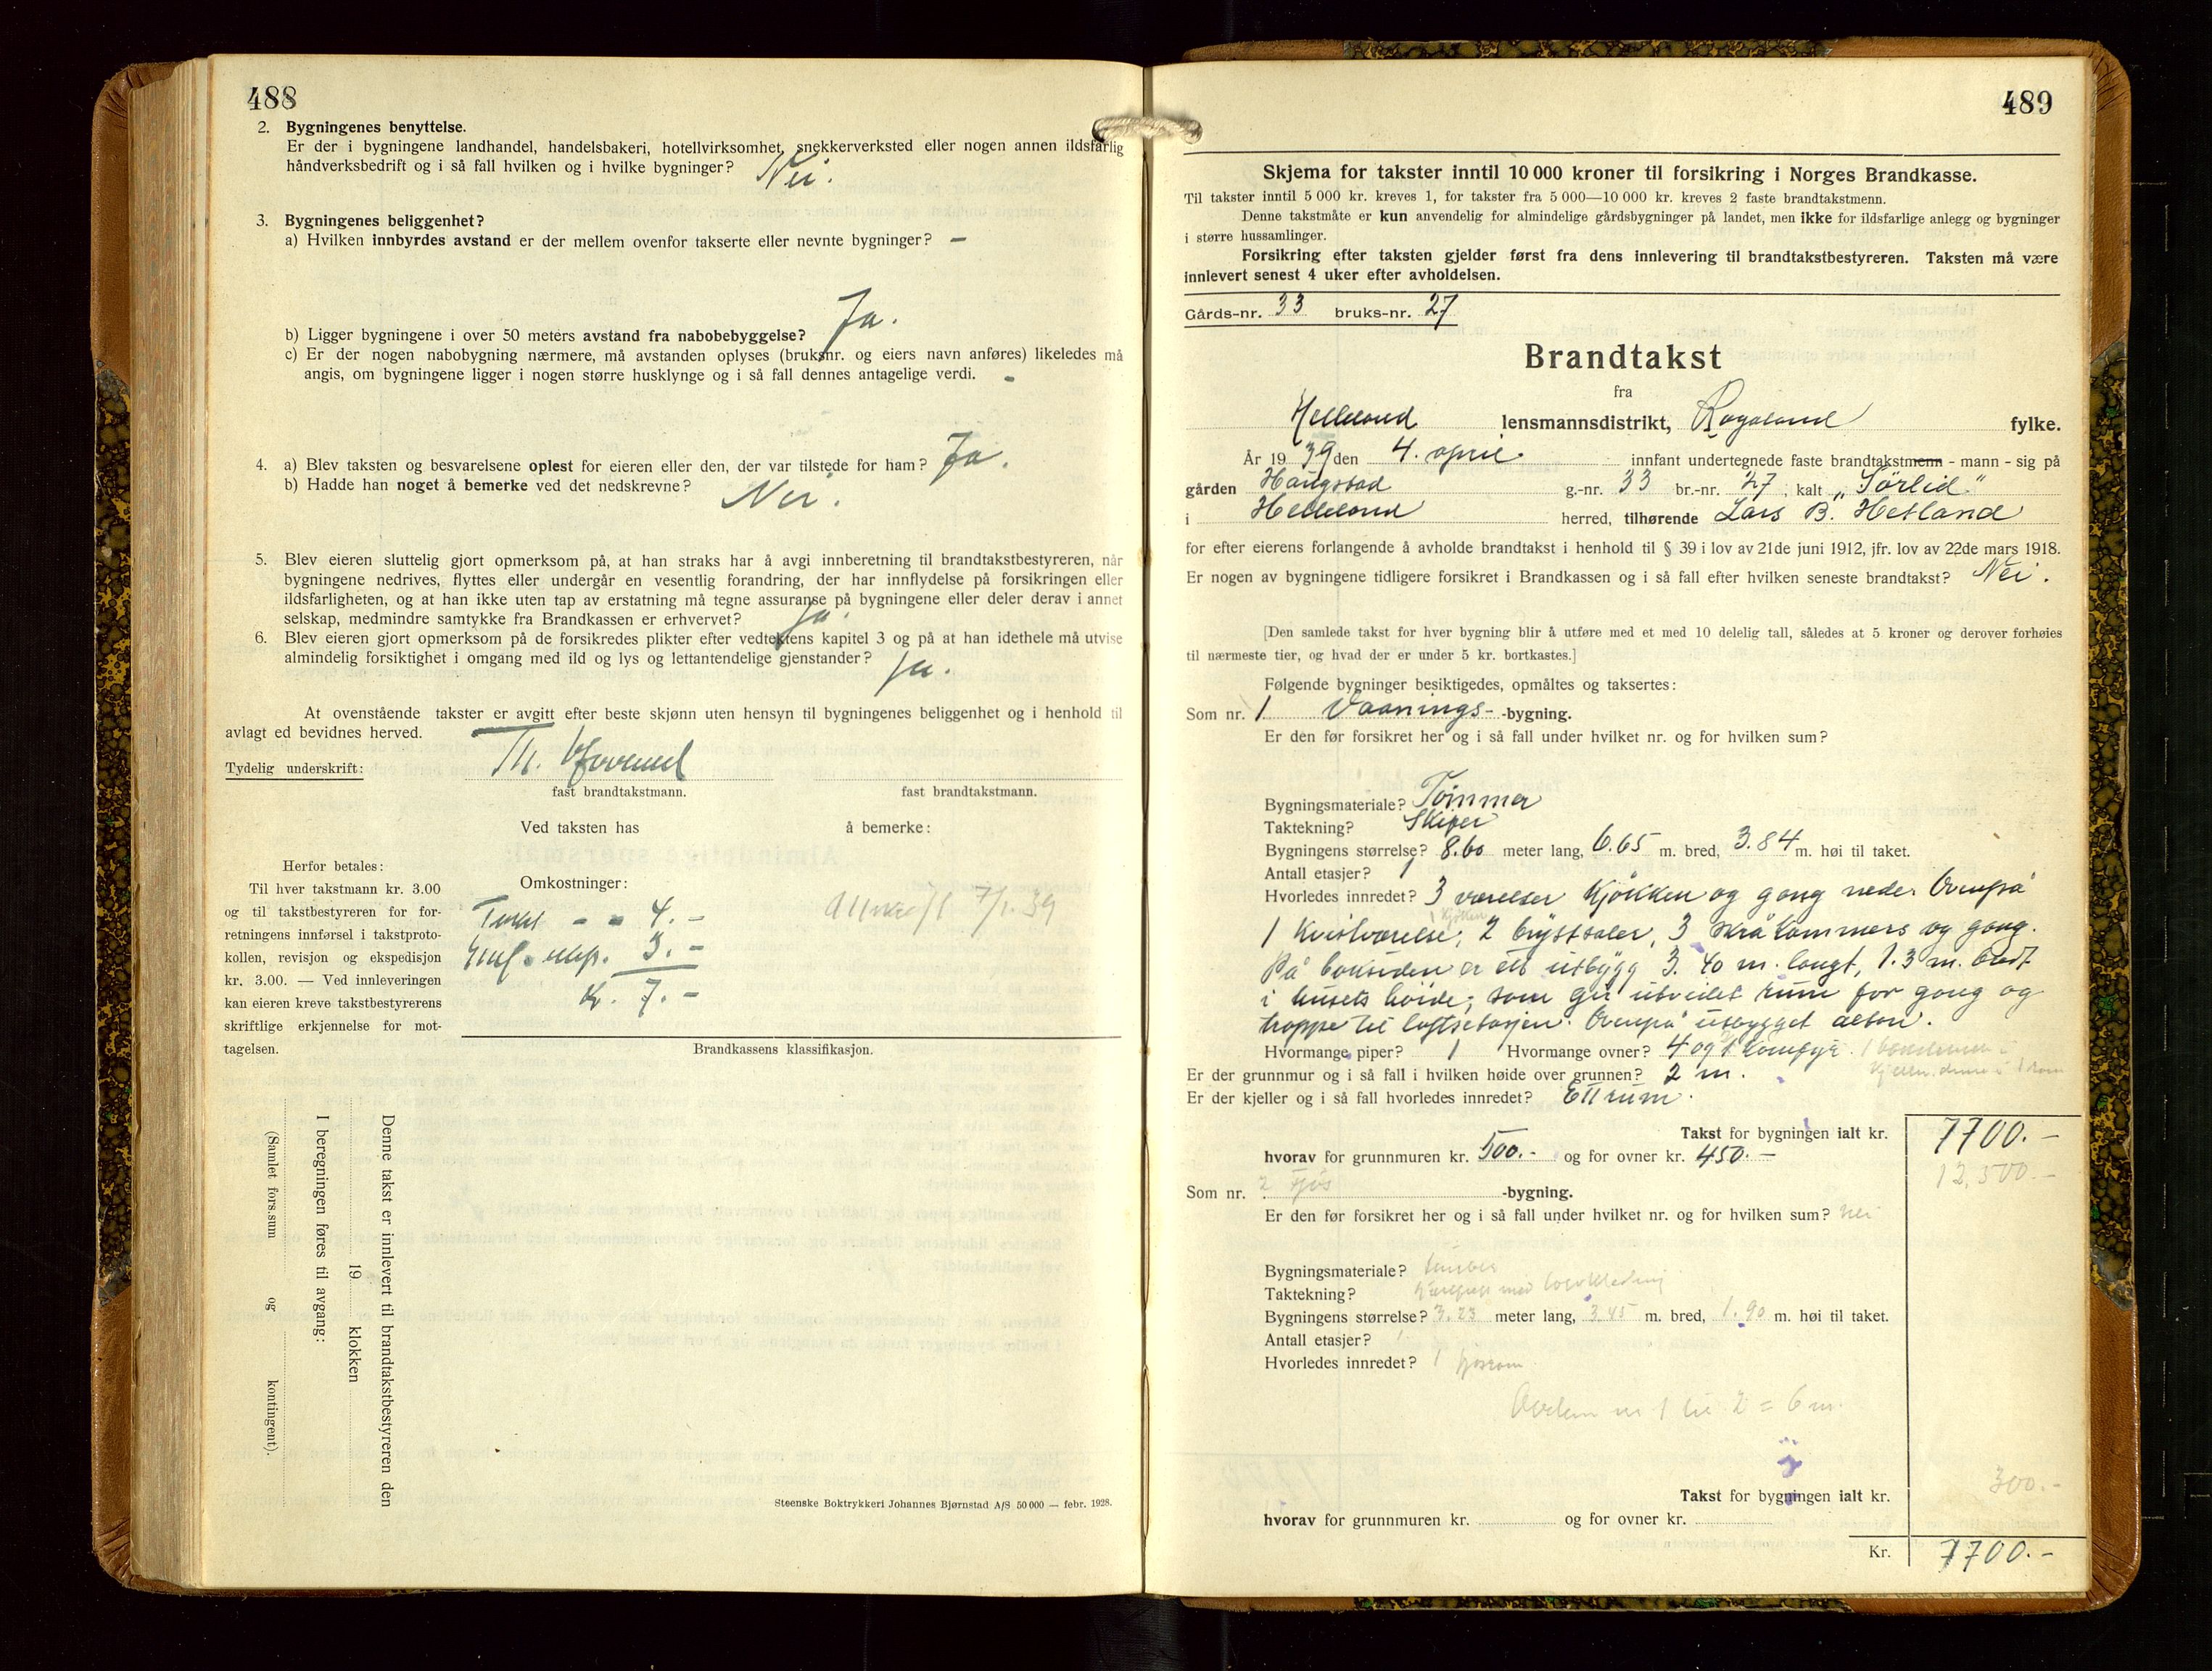 488
2. Bygningenes benyttelse.
Er der i bygningene landhandel, handelsbakeri, hotellvirksomhet, snekkerverksted eller nogen annen ildsfarlig
håndverksbedrift og i så fall hvilken og i hvilke bygninger? Nei.
3. Bygningenes beliggenhet?
a) Hvilken innbyrdes avstand er der mellem ovenfor takserte eller nevnte bygninger? —
b) Ligger bygningene i over 50 meters avstand fra nabobebyggelse? Ja.
c) Er der nogen nabobygning nærmere, må avstanden oplyses (bruksnr. og eiers navn anføres) likeledes må
angis, om bygningene ligger i nogen større husklynge og i så fall dennes antagelige verdi. -
4. a) Blev taksten og besvarelsene oplest for eieren eller den, der var tilstede for ham? Ja.
b) Hadde han noget å bemerke ved det nedskrevne? Nei.
5. Blev eieren sluttelig gjort opmerksom på, at han straks har å avgi innberetning til brandtakstbestyreren, når
bygningene nedrives, flyttes eller undergår en vesentlig forandring, der har innflydelse på forsikringen eller
ildsfarligheten, og at han ikke uten tap av erstatning må tegne assuranse på bygningene eller deler derav i annet
selskap, medmindre samtykke fra Brandkassen er erhvervet? Ja.
6. Blev eieren gjort opmerksom på de forsikredes plikter efter vedtektens kapitel 3 og på at han idethele må utvise
almindelig forsiktighet i omgang med ild og lys og lettantendelige gjenstander? Ja.
At ovenstående takster er avgitt efter beste skjønn uten hensyn til bygningenes beliggenhet og i henhold til
avlagt ed bevidnes herved.
Tydelig underskrift: Th.
fast brandtakstmann. fast brandtakstmann.
Ved taksten has å bemerke:
Herfor betales:
Til hver takstmann kr. 3.00
og til takstbestyreren for for-
retningens innførsel i takstproto-
kollen, revisjon og ekspedisjon
kr. 3.00. — Ved innleveringen
kan eieren kreve takstbestyrerens
skriftlige erkjennelse for mot-
tagelsen.
Omkostninger:
Takst - - 4.-
3.-
Kr. 7.-
39
Brandkassens klassifikasjon.
Denne takst er innlevert til brandtakstbestyreren den
19 klokken
I beregningen føres til avgang:
(Samlet fors.sum og kontingent).
Steenske Boktrykkeri Johannes Bjørnstad A/S 50 000 — febr. 1928.
489
Skjema for takster inntil 10 000 kroner til forsikring i Norges Brandkasse.
Til takster inntil 5 000 kr. kreves 1, for takster fra 5 000—10 000 kr. kreves 2 faste brandtakstmenn.
Denne takstmåte er kun anvendelig for almindelige gårdsbygninger på landet, men ikke for ildsfarlige anlegg og bygninger
i større hussamlinger.
Forsikring efter taksten gjelder først fra dens innlevering til brandtakstbestyreren. Taksten må være
innlevert senest 4 uker efter avholdelsen.
Gårds-nr. 33 bruks-nr. 27
Brandtakst
fra
Helleland lensmannsdistrikt, Rogaland fylke.
År 1939 den 4. april innfant undertegnede faste brandtakstmenn - mann - sig på
gården Haugstad g.-nr. 33 br.-nr. 27, kalt „Sørlid"
i Helleland herred, tilhørende Lars B. Hetland
for efter eierens forlangende å avholde brandtakst i henhold til § 39 i lov av 21de juni 1912, jfr. lov av 22de mars 1918.
Er nogen av bygningene tidligere forsikret i Brandkassen og i så fall efter hvilken seneste brandtakst? Nei.
[Den samlede takst for hver bygning blir å utføre med et med 10 delelig tall, således at 5 kroner og derover forhøies
til nærmeste tier, og hvad der er under 5 kr. bortkastes.]
Følgende bygninger besiktigedes, opmåltes og taksertes:
Som nr. 1 Vaanings- -bygning.
Er den før forsikret her og i så fall under hvilket nr. og for hvilken sum?
Bygningsmateriale? Tömmer
Taktekning? Skifer
Bygningens størrelse? 8.60 meter lang, 6.65 m. bred, 3.84 m. høi til taket.
Antall etasjer? 1
Hvorledes innredet? 3 værelser kjökken og gang nede. Ovenpå
1 kjöken
1 kvistværelse, 2 brystsaler, 3 skråkammers og gang.
På baksiden er ett utbygg 3.40 m. langt, 1.3 m. bredt
i husets höide, som gir utvidet rum for gang og
trappe til loftsetasjen. Ovenpå utbygget altan.
Hvormange piper? 1 Hvormange ovner? 4 og 1 komfyr.
Er der grunnmur og i så fall i hvilken høide over grunnen? 2 m.
Er der kjeller og i så fall hvorledes innredet? Ett rum.
Takst for bygningen ialt kr. 7700.-
hvorav for grunnmuren kr. 500.- og for ovner kr. 450.-
12,500.-
Som nr. 2 Fjös -bygning.
Er den før forsikret her og i så fall under hvilket nr. og for hvilken sum? nei
Bygningsmateriale?
Taktekning?
Bygningens størrelse? 3.23 meter lang, 3.45 m. bred, 1.90 m. høi til taket.
Antall etasjer? 1
Hvorledes innredet? 1 fjosrom
nr 1 til 2 = 6 m.
Takst for bygningen ialt kr. 300.-
hvorav for grunnmuren kr. og for ovner kr.
Kr. 7700.-